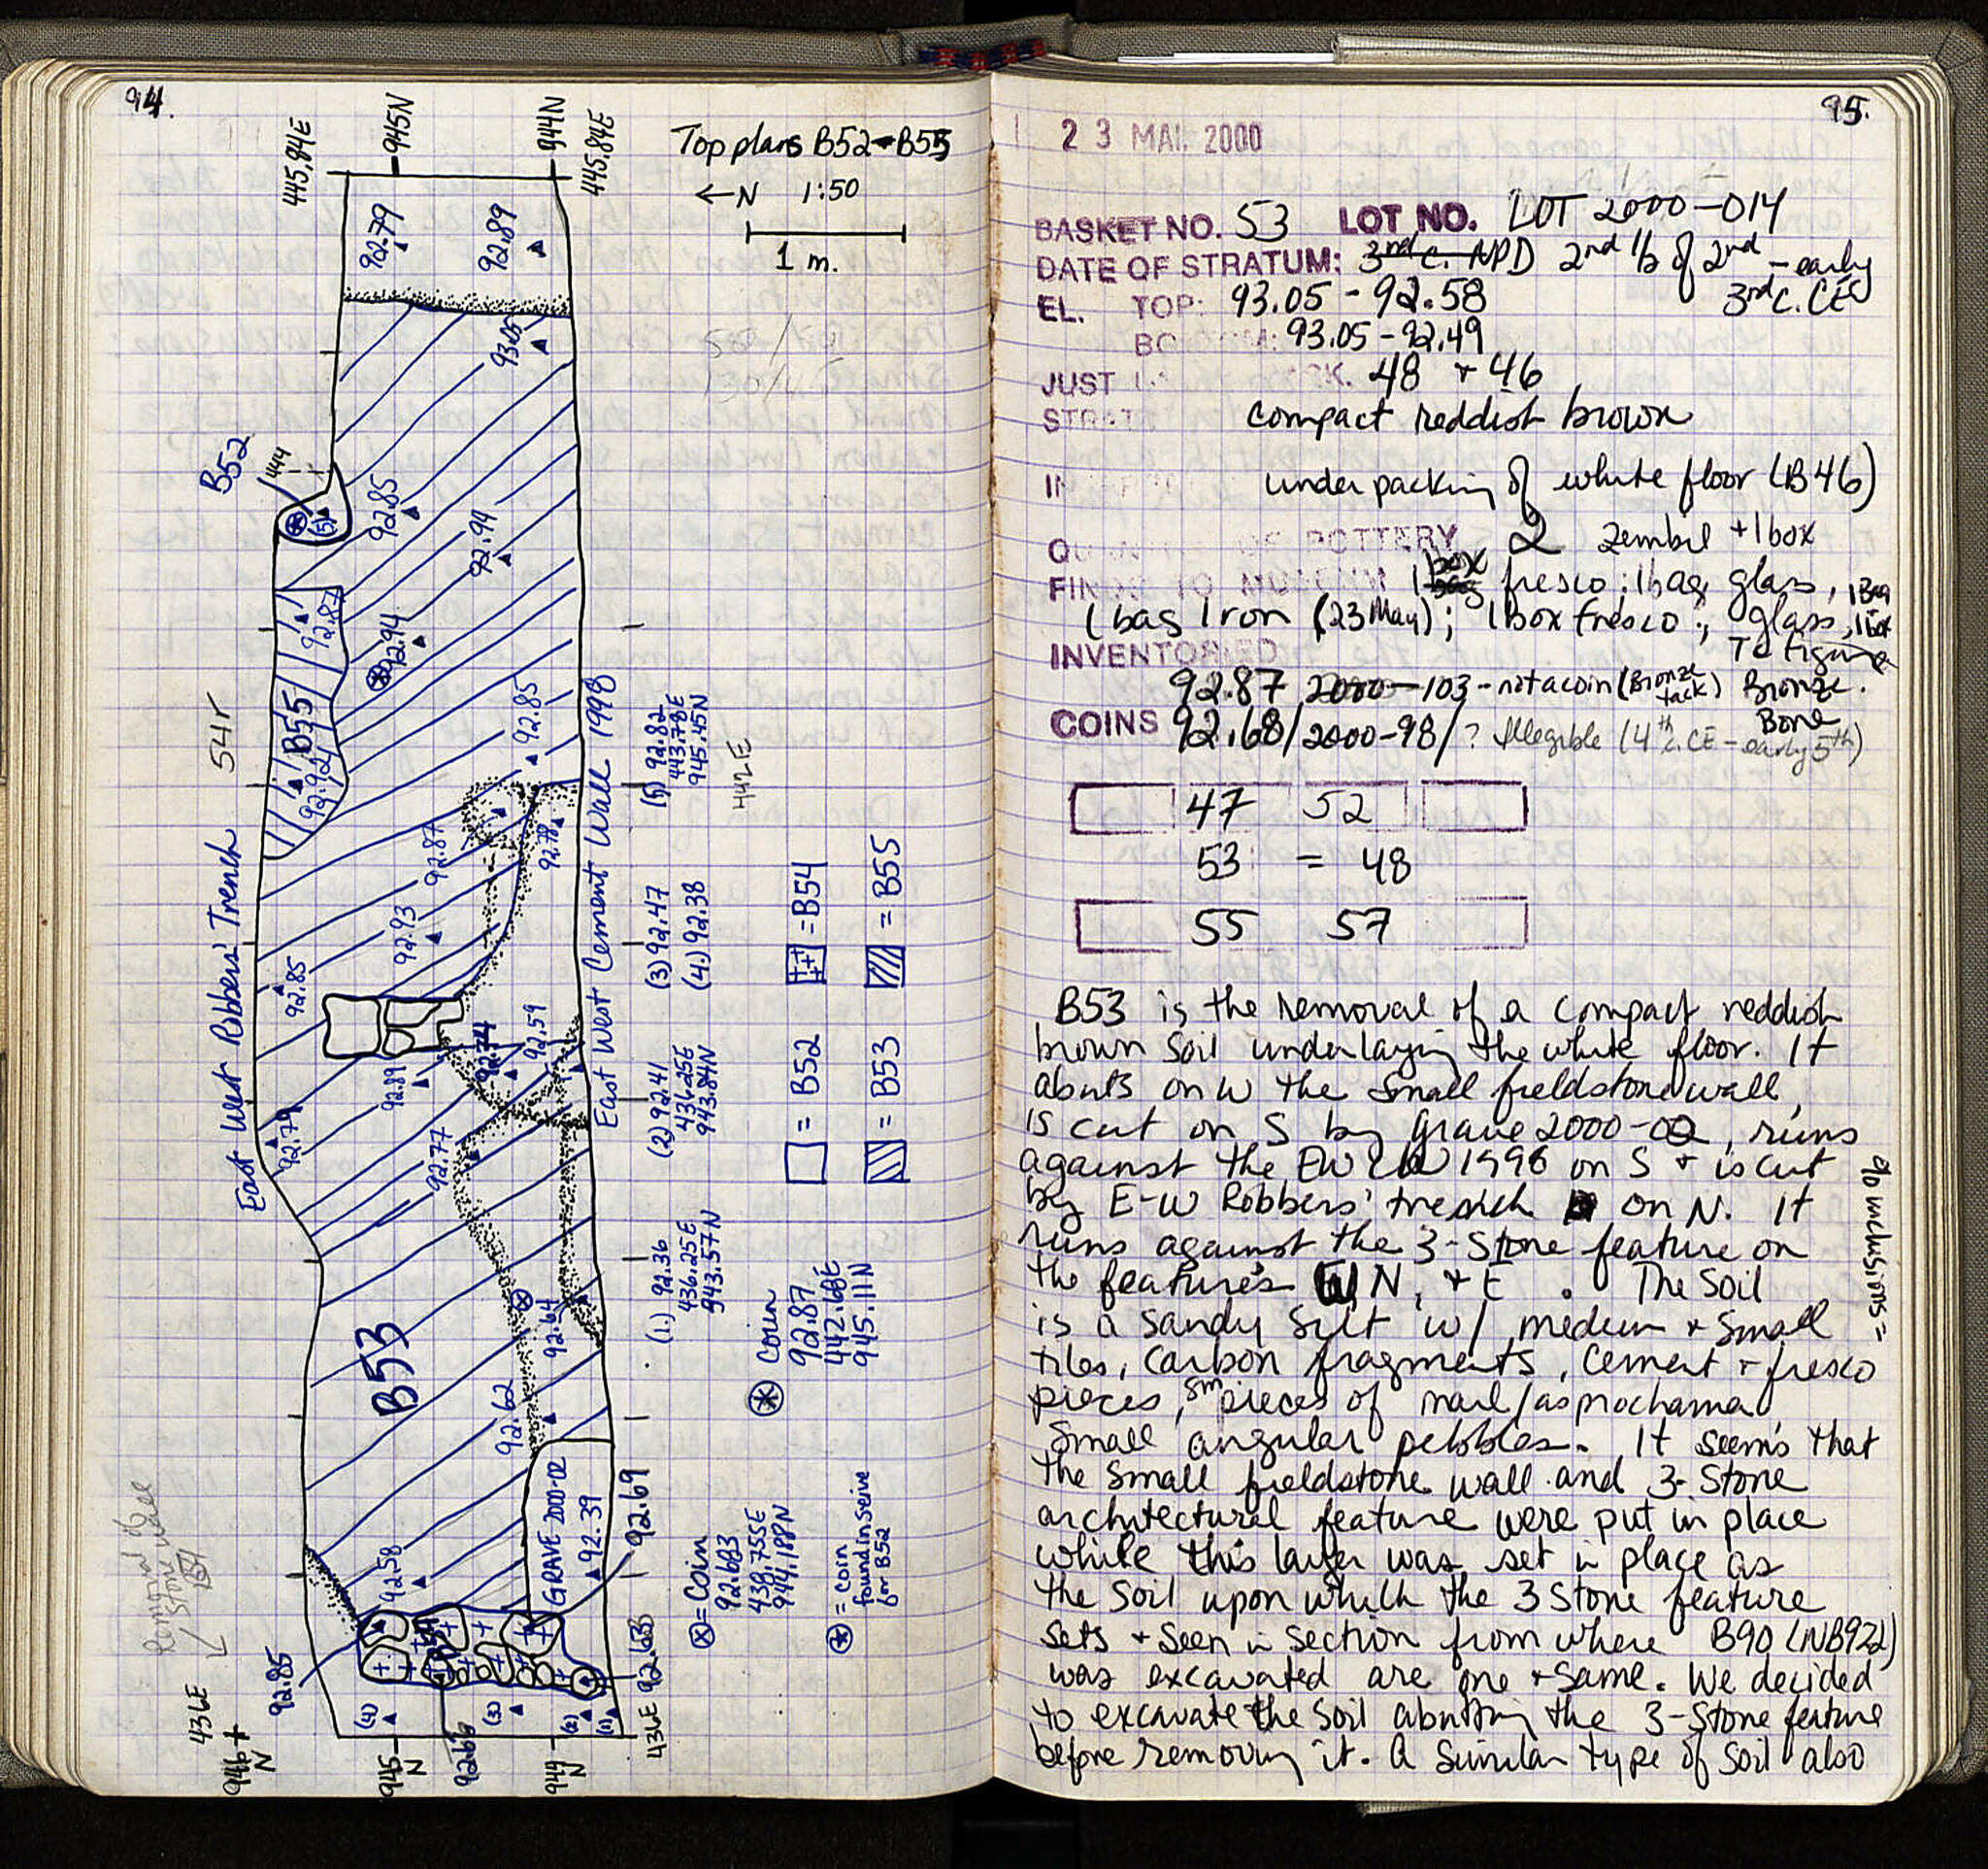 94.
445.84E
945N
944N
445.84E
Top plans B52-B55
←N 1:50
1 m.
92.79
92.89
93.05
B52
444
(5)
92.85
92.94
92.87
92.94
B55
92.92
92.85
54r
East West Robbers' Trench
East West Cement Wall 1998
(5) 92.82
443.78E
945.45N
442E
92.87
92.78
92.93
92.85
92.74
92.59
92.89
92.79
92.77
(3) 92.47
(4.) 92.38
= B54
= B55
(2) 92.41
436.25E
943.84N
= B52
= B53
(1.) 92.36
436.25E
943.57N
coin
92.87
442.68E
945.11N
B53
92.64
92.62
GRAVE 2000-02
92.39
92.69
92.58
= Coin
92.683
438.755E
944.188N
= coin
found in seive
for B52
Removal of
stone wall
B54
92.85
436E
946
N
(4)
(3)
(2)
(1)
945
N
92.66
944
N
436E
92.63
95.
23 MAI. 2000
BASKET NO. 53 LOT NO. LOT 2000-014
DATE OF STRATUM: 3rd c. NPD 2nd 1/2 of 2nd - early
3rd c. CE
EL. TOP: 93.05 - 92.58
93.05 - 92.49
JUST 48 + 46
STRAT compact reddish brown
under packing of white floor (B46)
POTTERY 2 zembil + 1 box
1 box fresco; 1 bag glass, 1 Bag
1 bag Iron (23 May); 1 box fresco; glass, 1 Box
Tc figurine
INVENTORIED
92.87 2000-103 - not a coin (Bronze tack) Bronze.
Bone
COINS 92.68/2000-98/? Illegible (4th c. CE - early 5th)
47 52
53 = 48
55 57
B53 is the removal of a compact reddish
brown soil underlaying the white floor. It
abuts on W the small fieldstone wall,
is cut on S by grave 2000-02, runs
against the EW CW 1998 on S + is cut
by E-W Robbers' trench on N. It
runs against the 3-Stone feature on
the feature's W, N, + E. The soil
is a sandy silt w/ medium + small
tiles, carbon fragments, cement + fresco
pieces, sm pieces of marl/asprochama
small angular pebbles. It seems that
the small fieldstone wall and 3-Stone
architectural feature were put in place
while this layer was set in place as
the soil upon which the 3 Stone feature
sets + seen in section from where B90 (NB922)
was excavated are one + same. We decided
to excavate the soil abutting the 3-Stone feature
before removing it. A similar type of soil also
% inclusions =